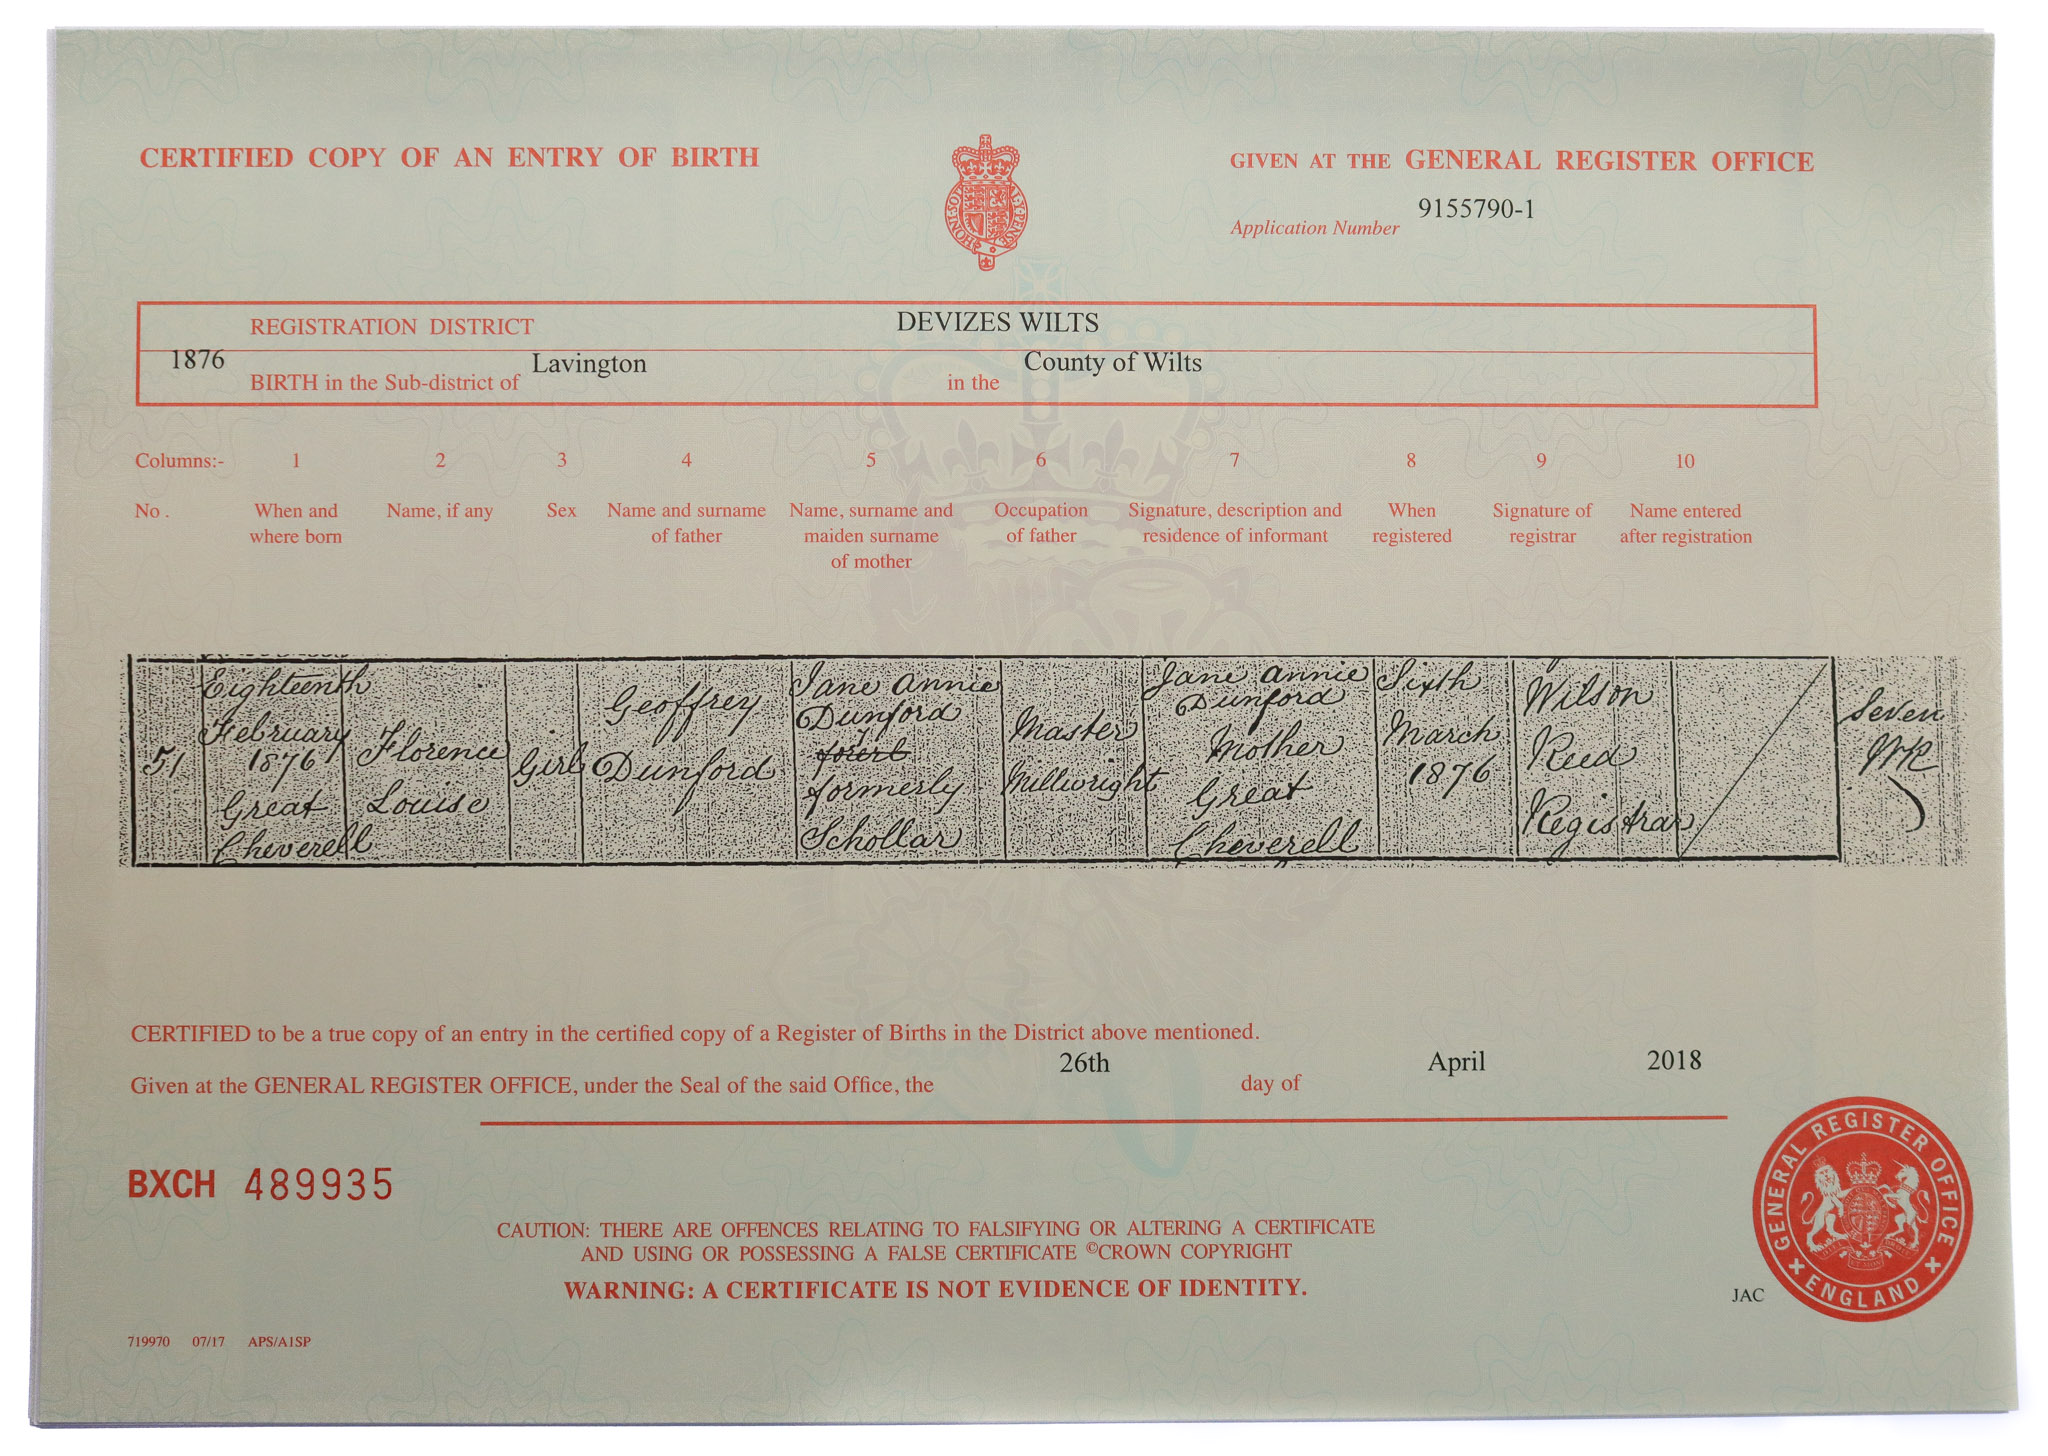 CERTIFIED COPY OF AN ENTRY OF BIRTH
GIVEN AT THE GENERAL REGISTER OFFICE
Application Number 9155790-1
REGISTRATION DISTRICT DEVIZES WILTS
1876 BIRTH in the Sub-district of Lavington in the County of Wilts
Columns:- 1 2 3 4 5 6 7 8 9 10
No. When and where born
Name, if any
Sex
Name and surname of father
Name, surname and maiden surname of mother
Occupation of father
Signature, description and residence of informant
When registered
Signature of registrar
Name entered after registration
51
Eighteenth
February
1876
Great
Cheverell
Florence
Louise
Girl
Geoffrey
Dunford
Jane Annie
Dunford
formerly
Schollar
Master
Millwright
Jane Annie
Dunford
Mother
Great
Cheverell
Sixth
March
1876
Wilson
Reed
Registrar
Seven
WR
CERTIFIED to be a true copy of an entry in the certified copy of a Register of Births in the District above mentioned.
Given at the GENERAL REGISTER OFFICE, under the Seal of the said Office, the 26th day of April 2018
BXCH 489935
CAUTION: THERE ARE OFFENCES RELATING TO FALSIFYING OR ALTERING A CERTIFICATE
AND USING OR POSSESSING A FALSE CERTIFICATE ©CROWN COPYRIGHT
WARNING: A CERTIFICATE IS NOT EVIDENCE OF IDENTITY.
JAC
GENERAL REGISTER OFFICE
ENGLAND
719970 07/17 APS/A1SP